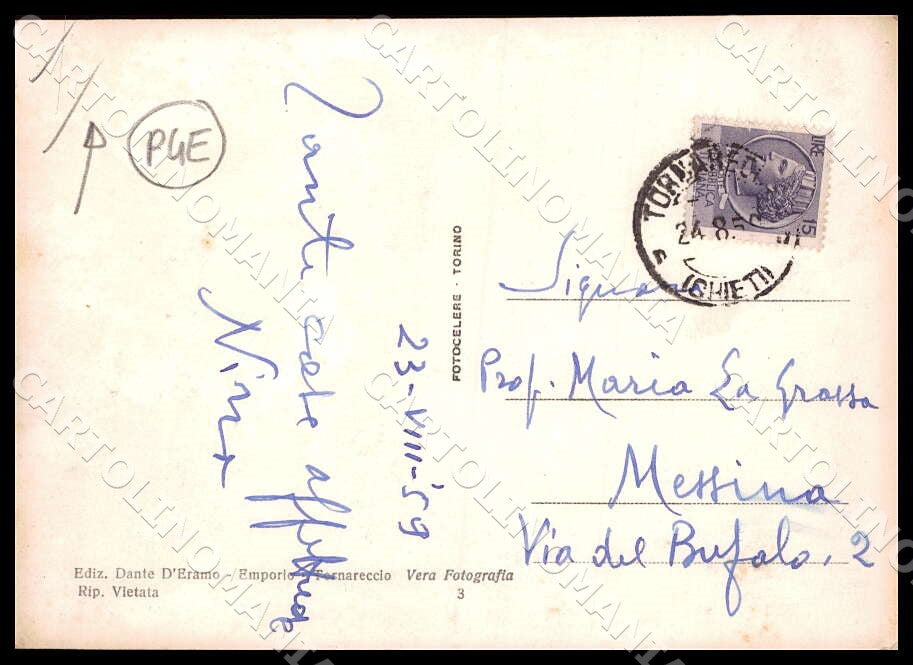 PGE
Tante cose affettuose
Nino
23-VIII-'59
FOTOCELERE - TORINO
LIRE 15
TORNARECCIO
24 8
(CHIETI)
Signora
Prof. Maria La Grassa
Messina
Via del Bufalo, 2
Ediz. Dante D'Eramo - Emporio - Tornareccio Vera Fotografia
Rip. Vietata 3
CARTOLINOMANIA